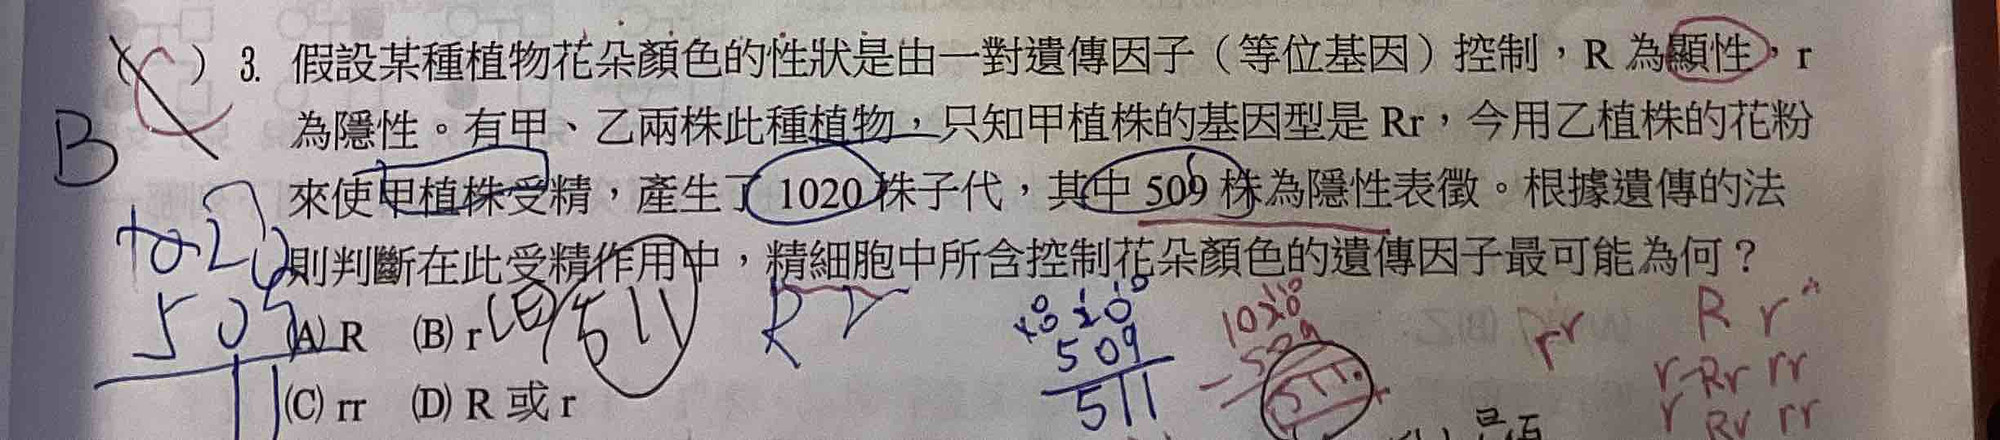 (C) 3. 假設某種植物花朵顏色的性狀是由一對遺傳因子（等位基因）控制，R 為顯性，r
B
為隱性。有甲、乙兩株此種植物，只知甲植株的基因型是 Rr，今用乙植株的花粉
來使甲植株受精，產生了 1020 株子代，其中 509 株為隱性表徵。根據遺傳的法
則判斷在此受精作用中，精細胞中所含控制花朵顏色的遺傳因子最可能為何？
(A) R (B) r
(C) rr (D) R 或 r
509
11
511
R r
1020
509
511
1020
-509
511
rr
R r
r Rr rr
r Rr rr